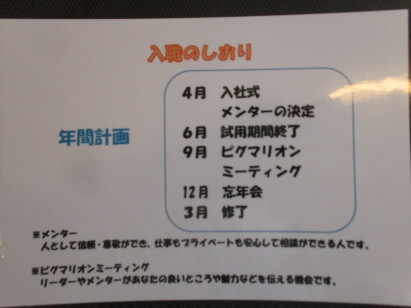 入職のしおり
年間計画
4月 入社式
メンターの決定
6月 試用期間終了
9月 ピグマリオン
ミーティング
12月 忘年会
3月 修了
※メンター
人として信頼・尊敬ができ、仕事もプライベートも安心して相談ができる人です。
※ピグマリオンミーティング
リーダーやメンターがあなたの良いところや魅力などを伝える機会です。